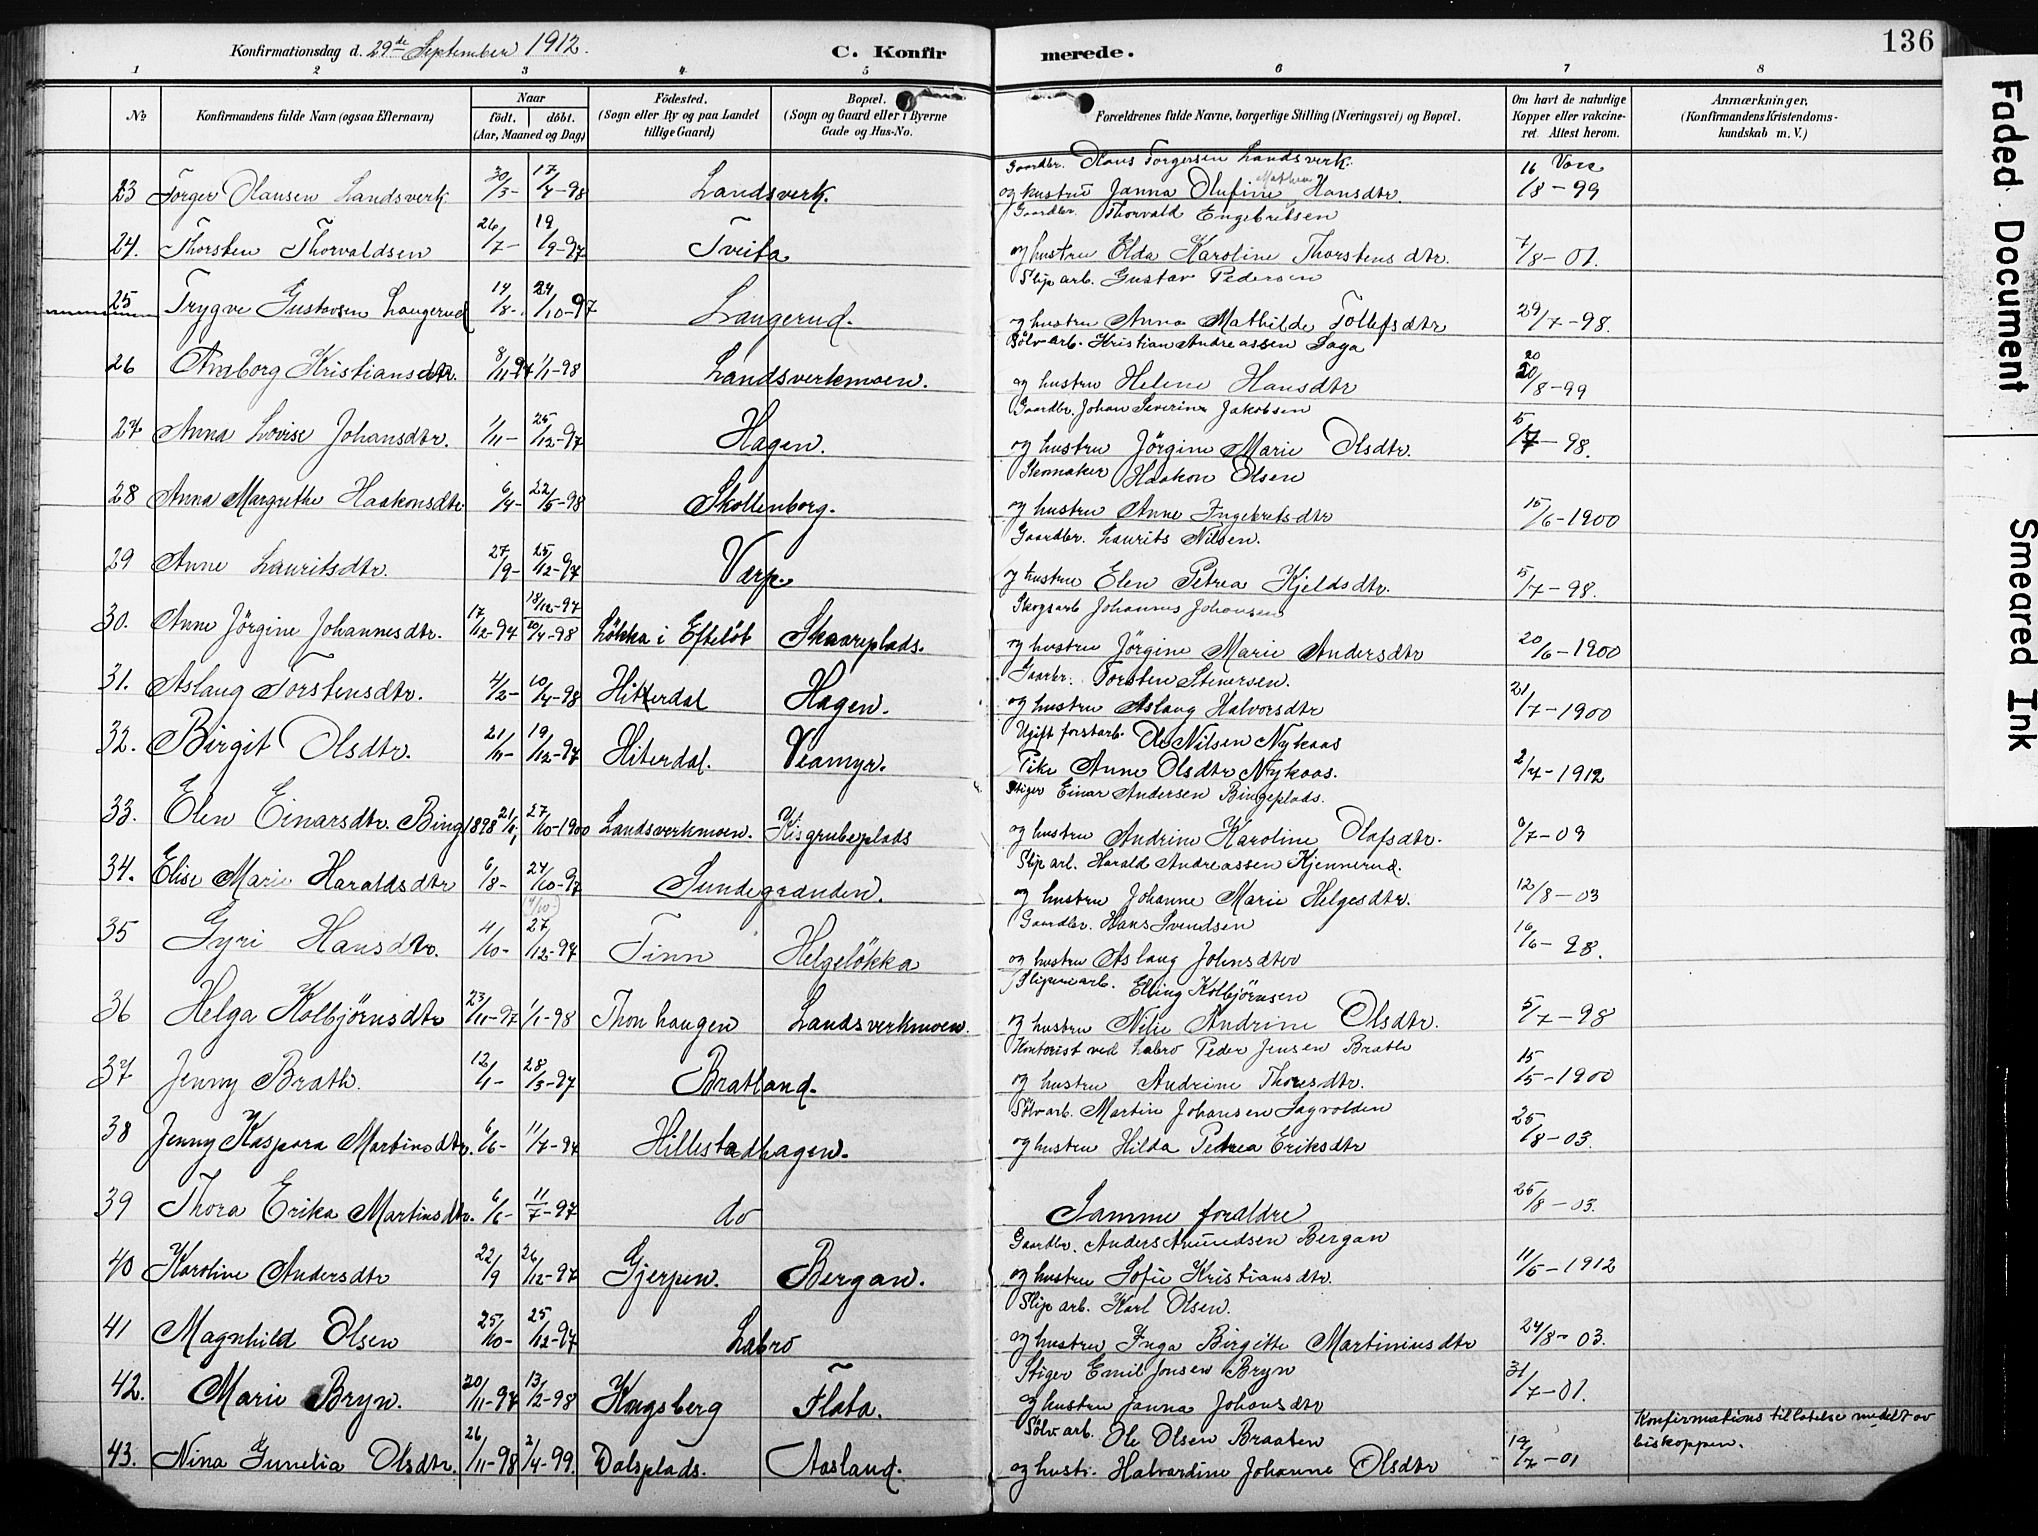 Konfirmationsdag d. 29de September 1912.
C. Konfirmerede.
136
1 2 3 4 5 6 7 8
No
Konfirmandens fulde Navn (ogsaa Efternavn)
Naar
født. døbt.
(Aar, Maaned og Dag)
Fødested.
(Sogn eller By og paa Landet
tillige Gaard)
Bopæl.
(Sogn og Gaard eller i Byerne
Gade og Hus-No.
Forældrenes fulde Navne, borgerlige Stilling (Næringsvei) og Bopæl.
Om havt de naturlige
Kopper eller vakcine-
ret. Attest herom.
Anmærkninger,
(Konfirmandens Kristendoms-
kundskab m. V.)
Gaardbr. Hans Torgersen Landsverk.
23 Torger Hansen Landsverk 30/3- 17/4-98 Landsverk. og hustru Janna Olufine Mathea Hansdtr. 16/8-99 Vacc
Gaardbr. Thorvald Engebretsen
24. Thorsten Thorvaldsen 26/7- 19/9-97 Tveita og hustru Elda Karoline Thorstensdtr. 7/8-01.
Slip arb. Gustav Pedersen
25 Trygve Gustavsen Langerud 14/8- 24/10-97 Langerud. og hustru Anna Mathilde Tollefsdtr 29/7-98.
Sølvarb. Kristian Andreassen Saga
26 Anborg Kristiansdtr. 8/11-97 1/1-98 Landsverkmoen. og hustru Helene Hansdtr 20/8-99
Gaardbr. Johan Severin Jakobsen
27 Anna Lovise Johansdtr. 1/11- 25/12-97 Hagen. og hustru Jörgine Marie Olsdtr. 5/7-98.
Skomaker Haakon Olsen
28 Anna Margrethe Haakonsdtr 6/4- 22/5-98 Skollenborg. og hustru Anne Ingebretsdtr 15/6-1900
Gaardbr. Laurits Nilsen.
29 Anne Lauritsdtr. 27/9- 25/12-97 Varp. og hustru Elen Petrea Kjeldsdtr. 5/7-98.
Skogsarb Johannes Johansen
30. Anne Jörgine Johannesdtr. 17/12-97 18/12-97 10/4-98 Løkka i Efteløt Skaareplads. og hustru Jörgine Marie Andersdtr 20/6-1900
Gaarbr. Torsten Stenersen.
31. Aslaug Torstensdtr. 4/2- 10/4-98 Hitterdal Hagen. og hustru Aslaug Halvorsdtr 21/7-1900
Ugift forstarb. Ole Nilsen Nykaas
32. Birgit Olsdtr. 21/11- 19/12-97 Hiterdal. Veamyr. Pike Anne Olsdtr Nykaas. 2/7-1912
Stiger Einar Andersen Bingeplads.
33. Elen Einarsdtr. Bing 1898 27/10-1900 Landsverkmoen. Kisgrubeplads og hustru Andrine Karoline Olafsdtr. 6/7-09
Slip arb. Harald Andreassen Kjennerud.
34. Elise Marie Haraldsdtr 6/8- 24/10-97 Sundegranden. og hustru Johanne Marie Helgesdtr. 12/8-03
Gaardbr. Hans Svendsen
35 Gyri Hansdtr. 4/10- 27/12-97 Tinn Helgeløkka og hustru Aslaug Johnsdtr 16/6-98.
Sliperiarb. Elling Kolbjörnsen
36 Helga Kolbjörnsdtr 23/11-97 1/1-98 Thon haugen Landsverkmoen. og hustru Nelie Andrine Olsdtr. 5/7-98
Kontorist ved Labro Peder Jensen Brath
37 Jenny Brath. 12/1- 28/3-97 Bratland. og hustru Andrine Thoresdtr. 15/5-1900
Sølvarb. Martin Johansen Sagvolden
38 Jenny Kaspara Martinsdtr. 6/6- 11/7-97 Hillestadhagen. og hustru Hilda Petrea Eriksdtr 25/8-03.
39 Thora Erika Martinsdtr. 6/6- 11/7-97 do Samme foraldre 25/8-03.
Gaardbr. Anders Amundsen Bergan
40 Karoline Andersdtr 22/9 26/12-97 Gjerpen. Bergan. og hustru Sofie Kristiansdtr. 11/5-1912
Slip arb. Karl Olsen.
41 Magnhild Olsen 25/10- 25/12-97 Labro og hustru Inga Birgitte Martiniusdtr 24/8-03.
Stiger Emil Jonsen Bryn
42. Marie Bryn. 20/11-97 13/2-98 Kongsberg Flata. og hustru Janna Johansdtr 31/7-01.
Sølvarb. Ole Olsen Braaten Konfirmations tillatelse medelt av
43. Nina Gunelia Olsdtr. 26/11-98 2/4-99. Dalsplads. Aasland. og hustr. Halvardine Johanne Olsdtr 19/7-01 biskoppen.
Faded Document
Smeared Ink